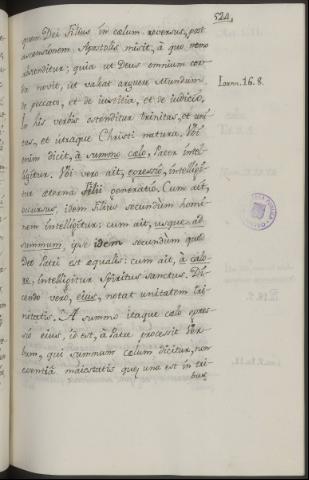 524.
quem Dei Filius in cœlum reversus, post
ascensionem Apostolis misit, à quo nemo
absconditur; quia ut Deus omnium cor
da novit, ut valeat arguere Mundum
de peccato, et de iustitia, et de iudicio,
Ioann. 16. 8.
In his verbis ostenditur trinitas, et uni
tas, et utraque Christi natura. Vbi
enim dicit, à summo cælo, Pater intel
ligitur. Vbi vero ait, egressio, intelligi
tur eterna Filii generatio. Cum ait,
occursus, idem Filius secundum homi
nem intelligitur: cum ait, usque ad
summum, ipse idem secundum quod
Deo Patri est equalis: cum ait, à calo
re, intelligitur Spiritus Sanctus. Di
cendo vero, eius, notat unitatem tri
nitatis. A summo itaque cælo egres
sio eius, id est, à Patre processit Ver
bum, qui summum cælum dicitur, non
essentiâ maiestatis quæ una est in tri
bus